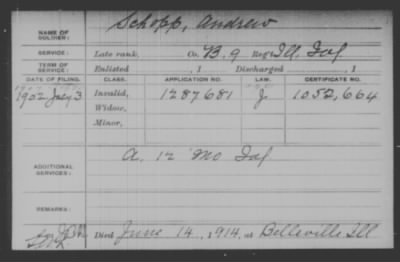 Schopp, Andrew
NAME OF SOLDIER:
SERVICE: Late rank, Co. B, 9 Reg't Ill. Inf
TERM OF SERVICE: Enlisted , 1 Discharged , 1
DATE OF FILING. CLASS. APPLICATION NO. LAW. CERTIFICATE NO.
1902 July 3 Invalid, 1287681 J 1,052,664
Widow,
Minor,
A. 12 Mo Inf
ADDITIONAL SERVICES:
REMARKS:
Died June 14, 1914, at Belleville Ill